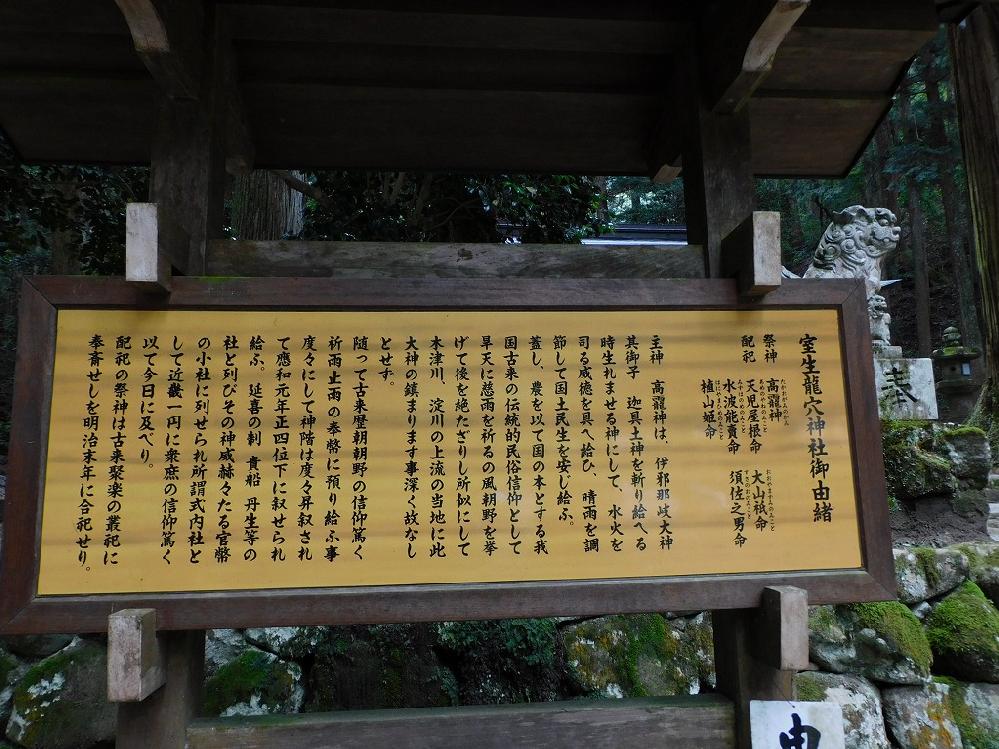 室生龍穴神社御由緒
祭神 高龗神
たかおかみのかみ
配祀 天児屋根命 大山祇命
あめのこやねのみこと おおやまずみのみこと
水波能賣命 須佐之男命
みずはのめのみこと すさのおのみこと
植山姫命
はにやまひめのみこと
主神 高龗神は、伊邪那岐大神
其御子 迦具土神を斬り給へる
時生れませる神にして、水火を
司る威徳を具へ給ひ、晴雨を調
節して国土民生を安じ給ふ。
蓋し、農を以て国の本とする我
国古来の伝統的民俗信仰として
旱天に慈雨を祈るの風朝野を挙
げて後を絶たざりし所似にして
木津川、淀川の上流の当地に此
大神の鎮まります事深く故なし
とせず。
随って古来歴朝朝野の信仰篤く
祈雨止雨の奉幣に預り給ふ事
度々にして神階は度々昇叙され
て應和元年正四位下に叙せられ
給ふ。延喜の制 貴船 丹生等の
社と列びその神威赫々たる官幣
の小社に列せられ所謂式内社と
して近畿一円に衆庶の信仰篤く
以て今日に及べり。
配祀の祭神は古来聚楽の叢祀に
奉斎せしを明治末年に合祀せり。
奉